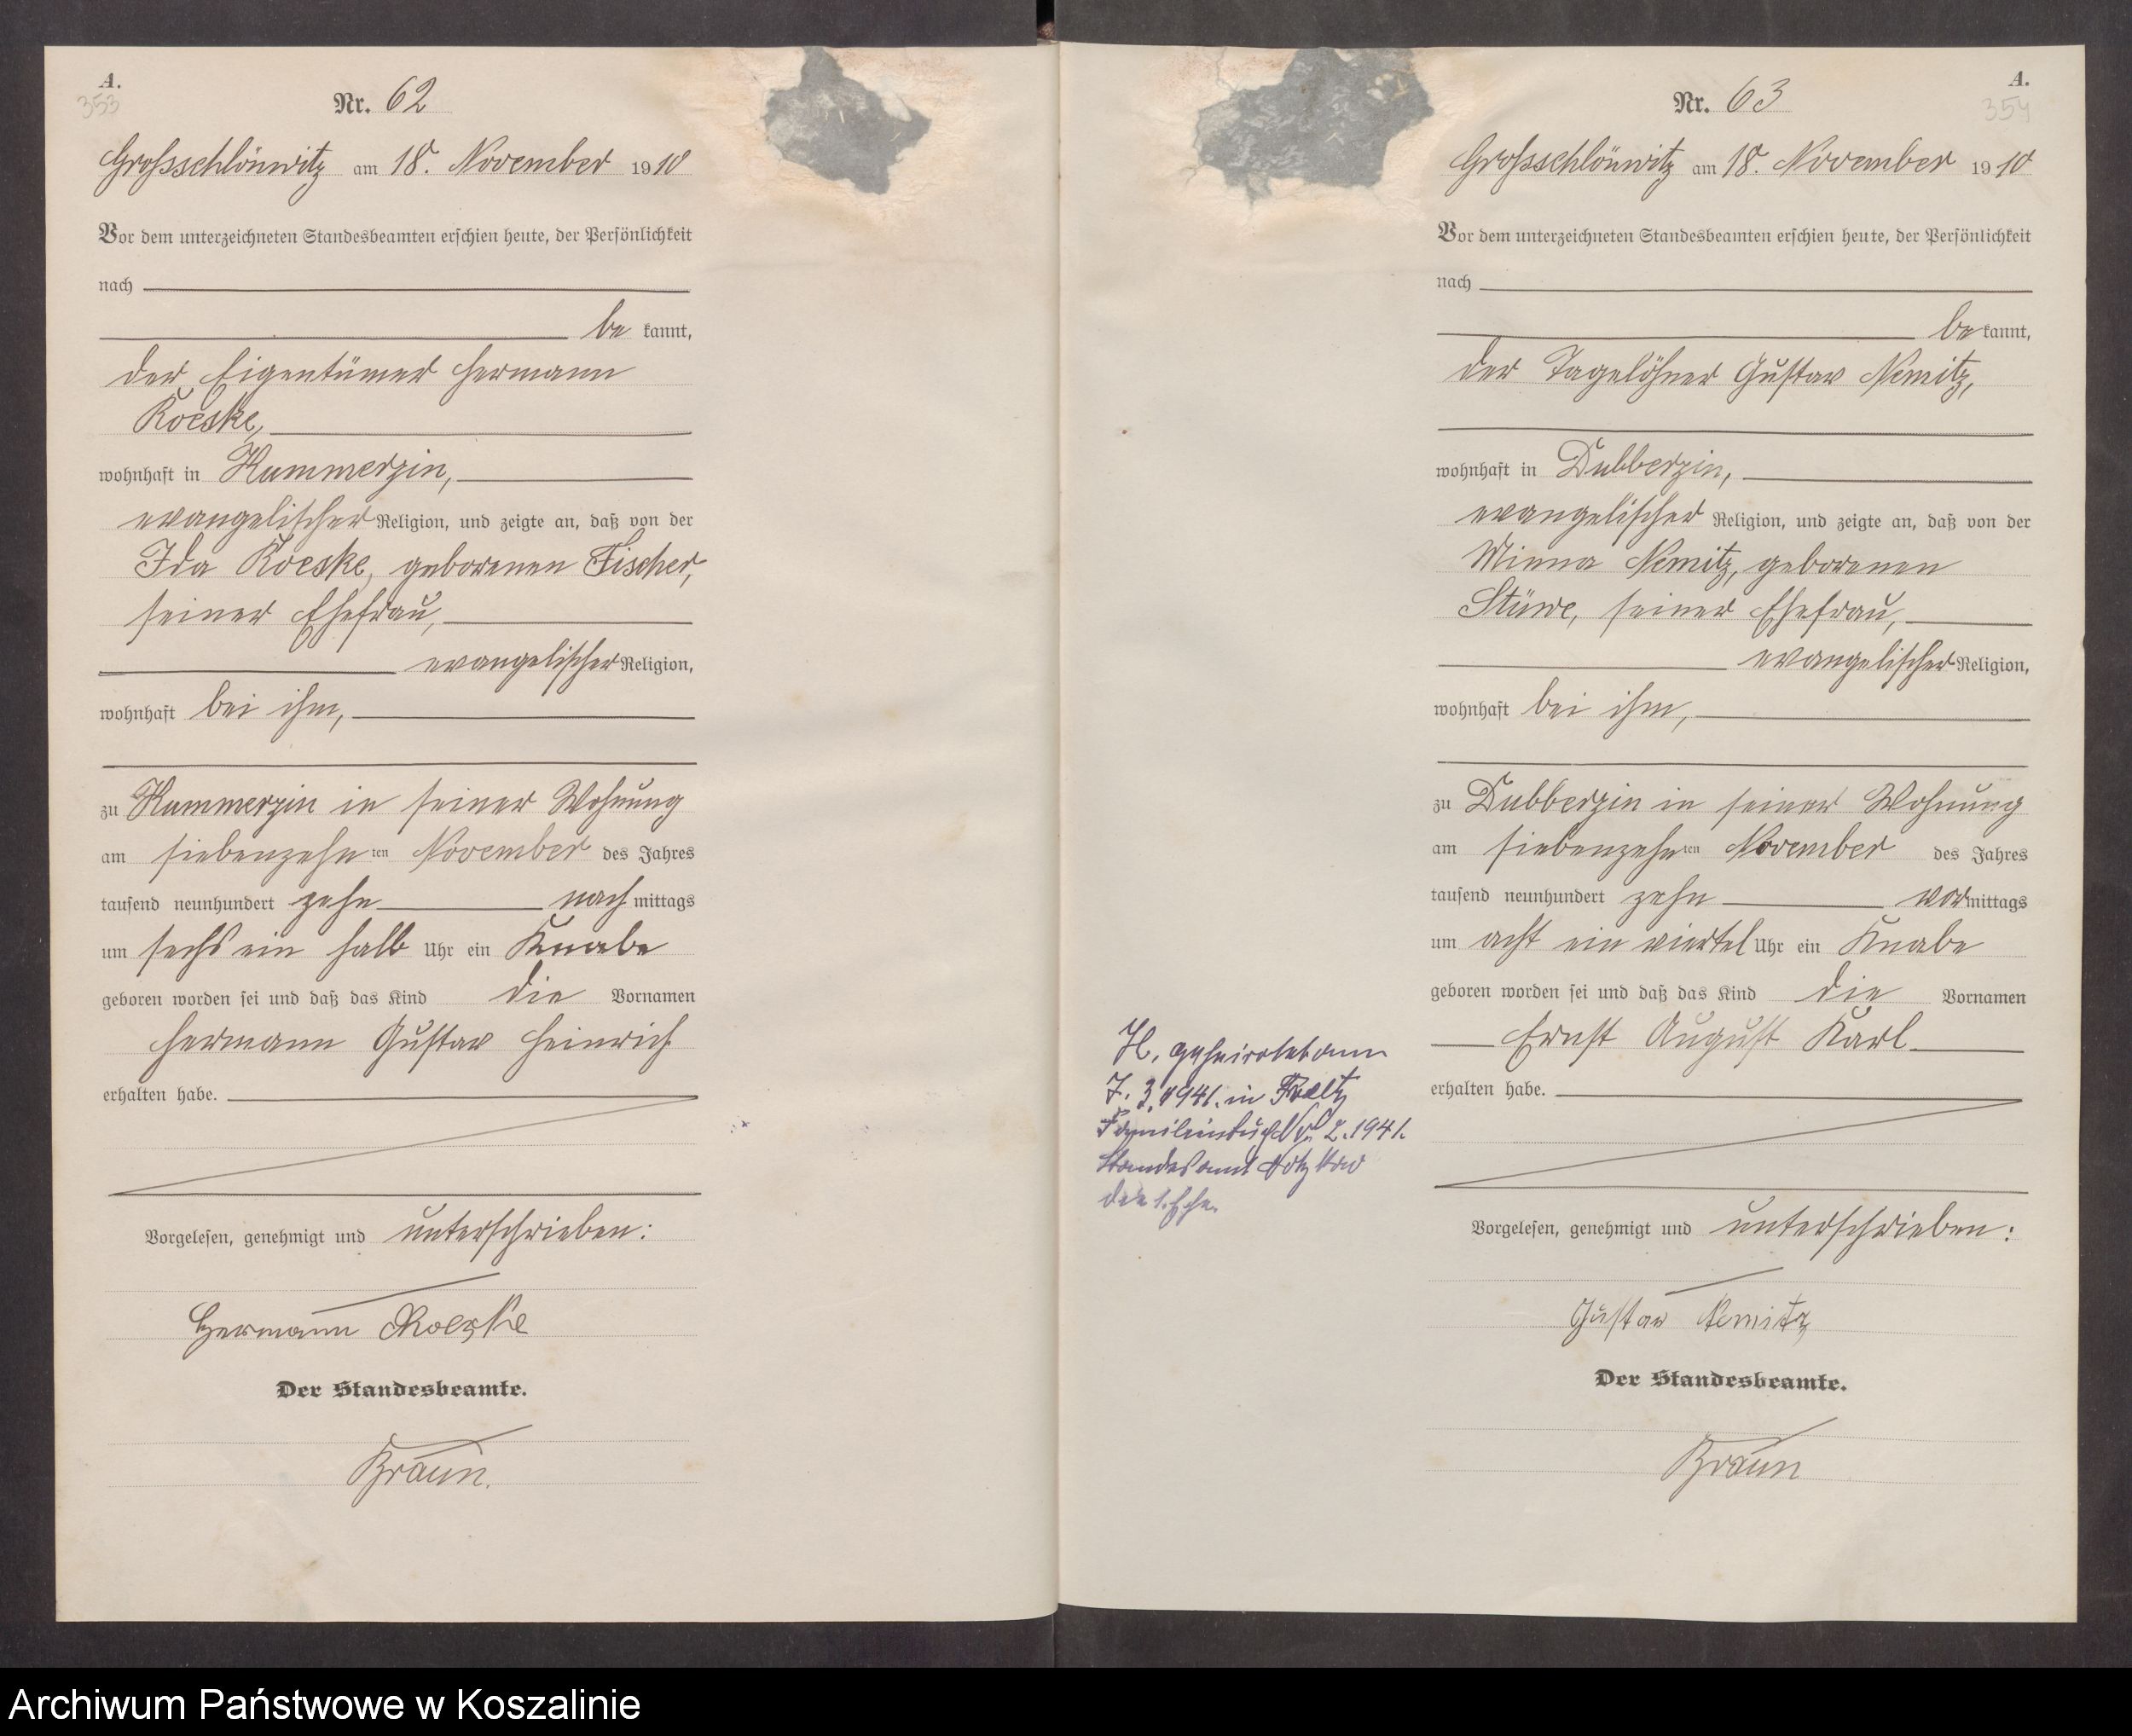 A.
353
Nr. 62
Grossschlönwitz am 18. November 1910
Vor dem unterzeichneten Standesbeamten erschien heute, der Persönlichkeit
nach
be kannt,
der Eigentümer Hermann
Koeske,
wohnhaft in Kummerzin,
evangelischer Religion, und zeigte an, daß von der
Ida Koeske, geborenen Fischer,
seiner Ehefrau,
evangelischer Religion,
wohnhaft bei ihm,
zu Kummerzin in seiner Wohnung
am siebenzehn ten November des Jahres
tausend neunhundert zehn nach mittags
um sechs ein halb Uhr ein Knabe
geboren worden sei und daß das Kind die Vornamen
Hermann Gustav Heinrich
erhalten habe.
Vorgelesen, genehmigt und unterschrieben:
Hermann Koeske
Der Standesbeamte.
Braun.
A.
354
Nr. 63
Grossschlönwitz am 18. November 1910
Vor dem unterzeichneten Standesbeamten erschien heute, der Persönlichkeit
nach
be kannt,
der Tagelöhner Gustav Nemitz,
wohnhaft in Dubberzin,
evangelischer Religion, und zeigte an, daß von der
Minna Nemitz, geborenen
Stüwe, seiner Ehefrau,
evangelischer Religion,
wohnhaft bei ihm,
zu Dubberzin in seiner Wohnung
am siebenzehn ten November des Jahres
tausend neunhundert zehn vor mittags
um acht ein viertel Uhr ein Knabe
geboren worden sei und daß das Kind die Vornamen
Ernst August Karl
erhalten habe.
Vorgelesen, genehmigt und unterschrieben:
Gustav Nemitz
Der Standesbeamte.
Braun
geheiratet am
7. 3. 1941. in
Familienbuch Nr. 2. 1941.
Standesamt
die 1. Ehe.
Archiwum Państwowe w Koszalinie